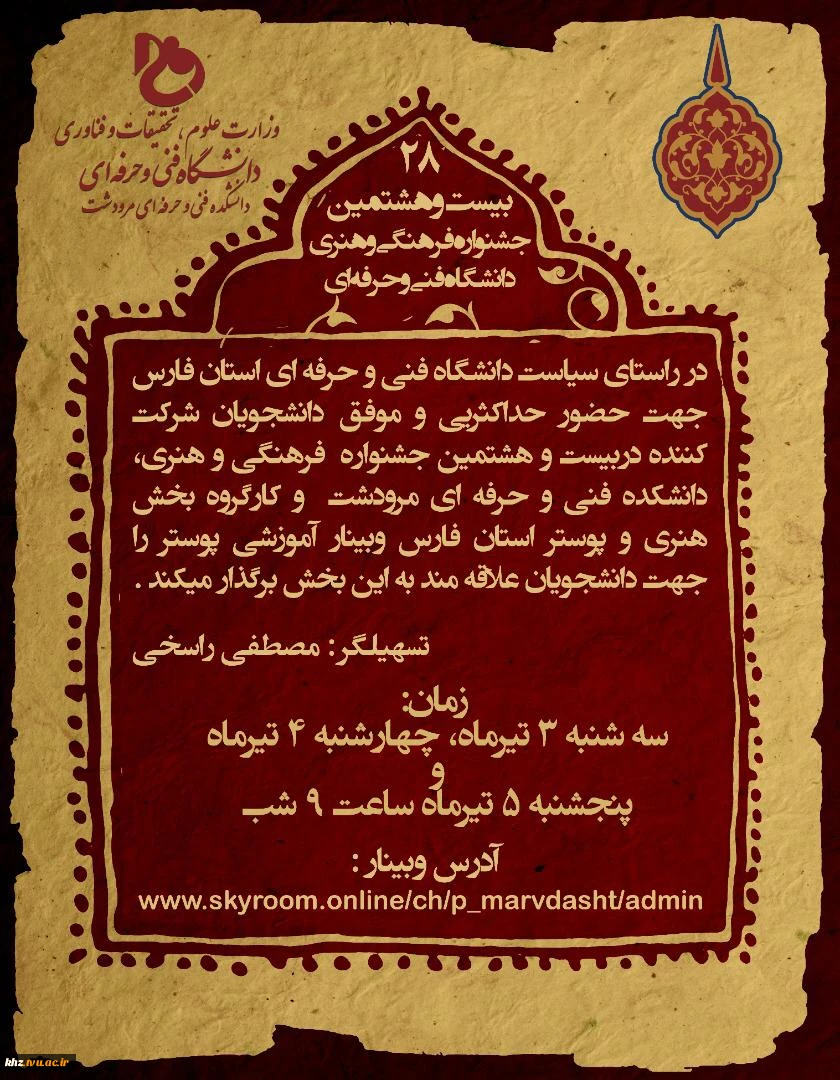 وزارت علوم، تحقیقات و فناوری
دانشگاه فنی و حرفه ای
دانشکده فنی و حرفه ای مرودشت
۲۸
بیست و هشتمین
جشنواره فرهنگی و هنری
دانشگاه فنی و حرفه‌ای
در راستای سیاست دانشگاه فنی و حرفه ای استان فارس
جهت حضور حداکثریی و موفق دانشجویان شرکت
کننده دربیست و هشتمین جشنواره فرهنگی و هنری،
دانشکده فنی و حرفه ای مرودشت و کارگروه بخش
هنری و پوستر استان فارس وبینار آموزشی پوستر را
جهت دانشجویان علاقه مند به این بخش برگذار میکند .
تسهیلگر: مصطفی راسخی
زمان:
سه شنبه ۳ تیرماه، چهارشنبه ۴ تیرماه
و
پنجشنبه ۵ تیرماه ساعت ۹ شب
آدرس وبینار :
www.skyroom.online/ch/p_marvdasht/admin
khz.tvu.ac.ir